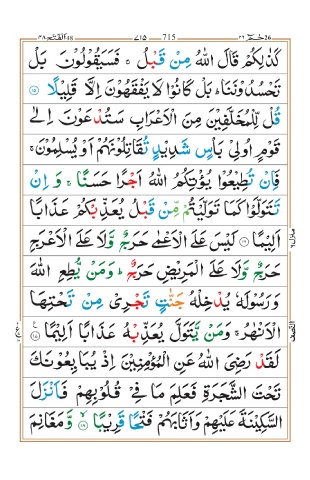 حٰمٓ ٢٦ 715 ٧١٥ الفتح ٤٨
كَذٰلِكُمْ قَالَ اللّٰهُ مِنْ قَبْلُ ۚ فَسَيَقُوْلُوْنَ بَلْ
تَحْسُدُوْنَنَا ؕ بَلْ كَانُوْا لَا يَفْقَهُوْنَ اِلَّا قَلِيْلًا ﴿۱۵﴾
قُلْ لِّلْمُخَلَّفِيْنَ مِنَ الْاَعْرَابِ سَتُدْعَوْنَ اِلٰى
قَوْمٍ اُولِيْ بَاْسٍ شَدِيْدٍ تُقَاتِلُوْنَهُمْ اَوْ يُسْلِمُوْنَ ۚ
فَاِنْ تُطِيْعُوْا يُؤْتِكُمُ اللّٰهُ اَجْرًا حَسَنًا ۚ وَ اِنْ
تَتَوَلَّوْا كَمَا تَوَلَّيْتُمْ مِّنْ قَبْلُ يُعَذِّبْكُمْ عَذَابًا
اَلِيْمًا ﴿۱۶﴾ لَيْسَ عَلَى الْاَعْمٰى حَرَجٌ وَّلَا عَلَى الْاَعْرَجِ
حَرَجٌ وَّلَا عَلَى الْمَرِيْضِ حَرَجٌ ؕ وَمَنْ يُّطِعِ اللّٰهَ
وَرَسُوْلَهٗ يُدْخِلْهُ جَنّٰتٍ تَجْرِيْ مِنْ تَحْتِهَا
الْاَنْهٰرُ ۚ وَمَنْ يَّتَوَلَّ يُعَذِّبْهُ عَذَابًا اَلِيْمًا ﴿۱۷﴾
لَقَدْ رَضِيَ اللّٰهُ عَنِ الْمُؤْمِنِيْنَ اِذْ يُبَايِعُوْنَكَ
تَحْتَ الشَّجَرَةِ فَعَلِمَ مَا فِيْ قُلُوْبِهِمْ فَاَنْزَلَ
السَّكِيْنَةَ عَلَيْهِمْ وَاَثَابَهُمْ فَتْحًا قَرِيْبًا ﴿۱۸﴾ وَّمَغَانِمَ